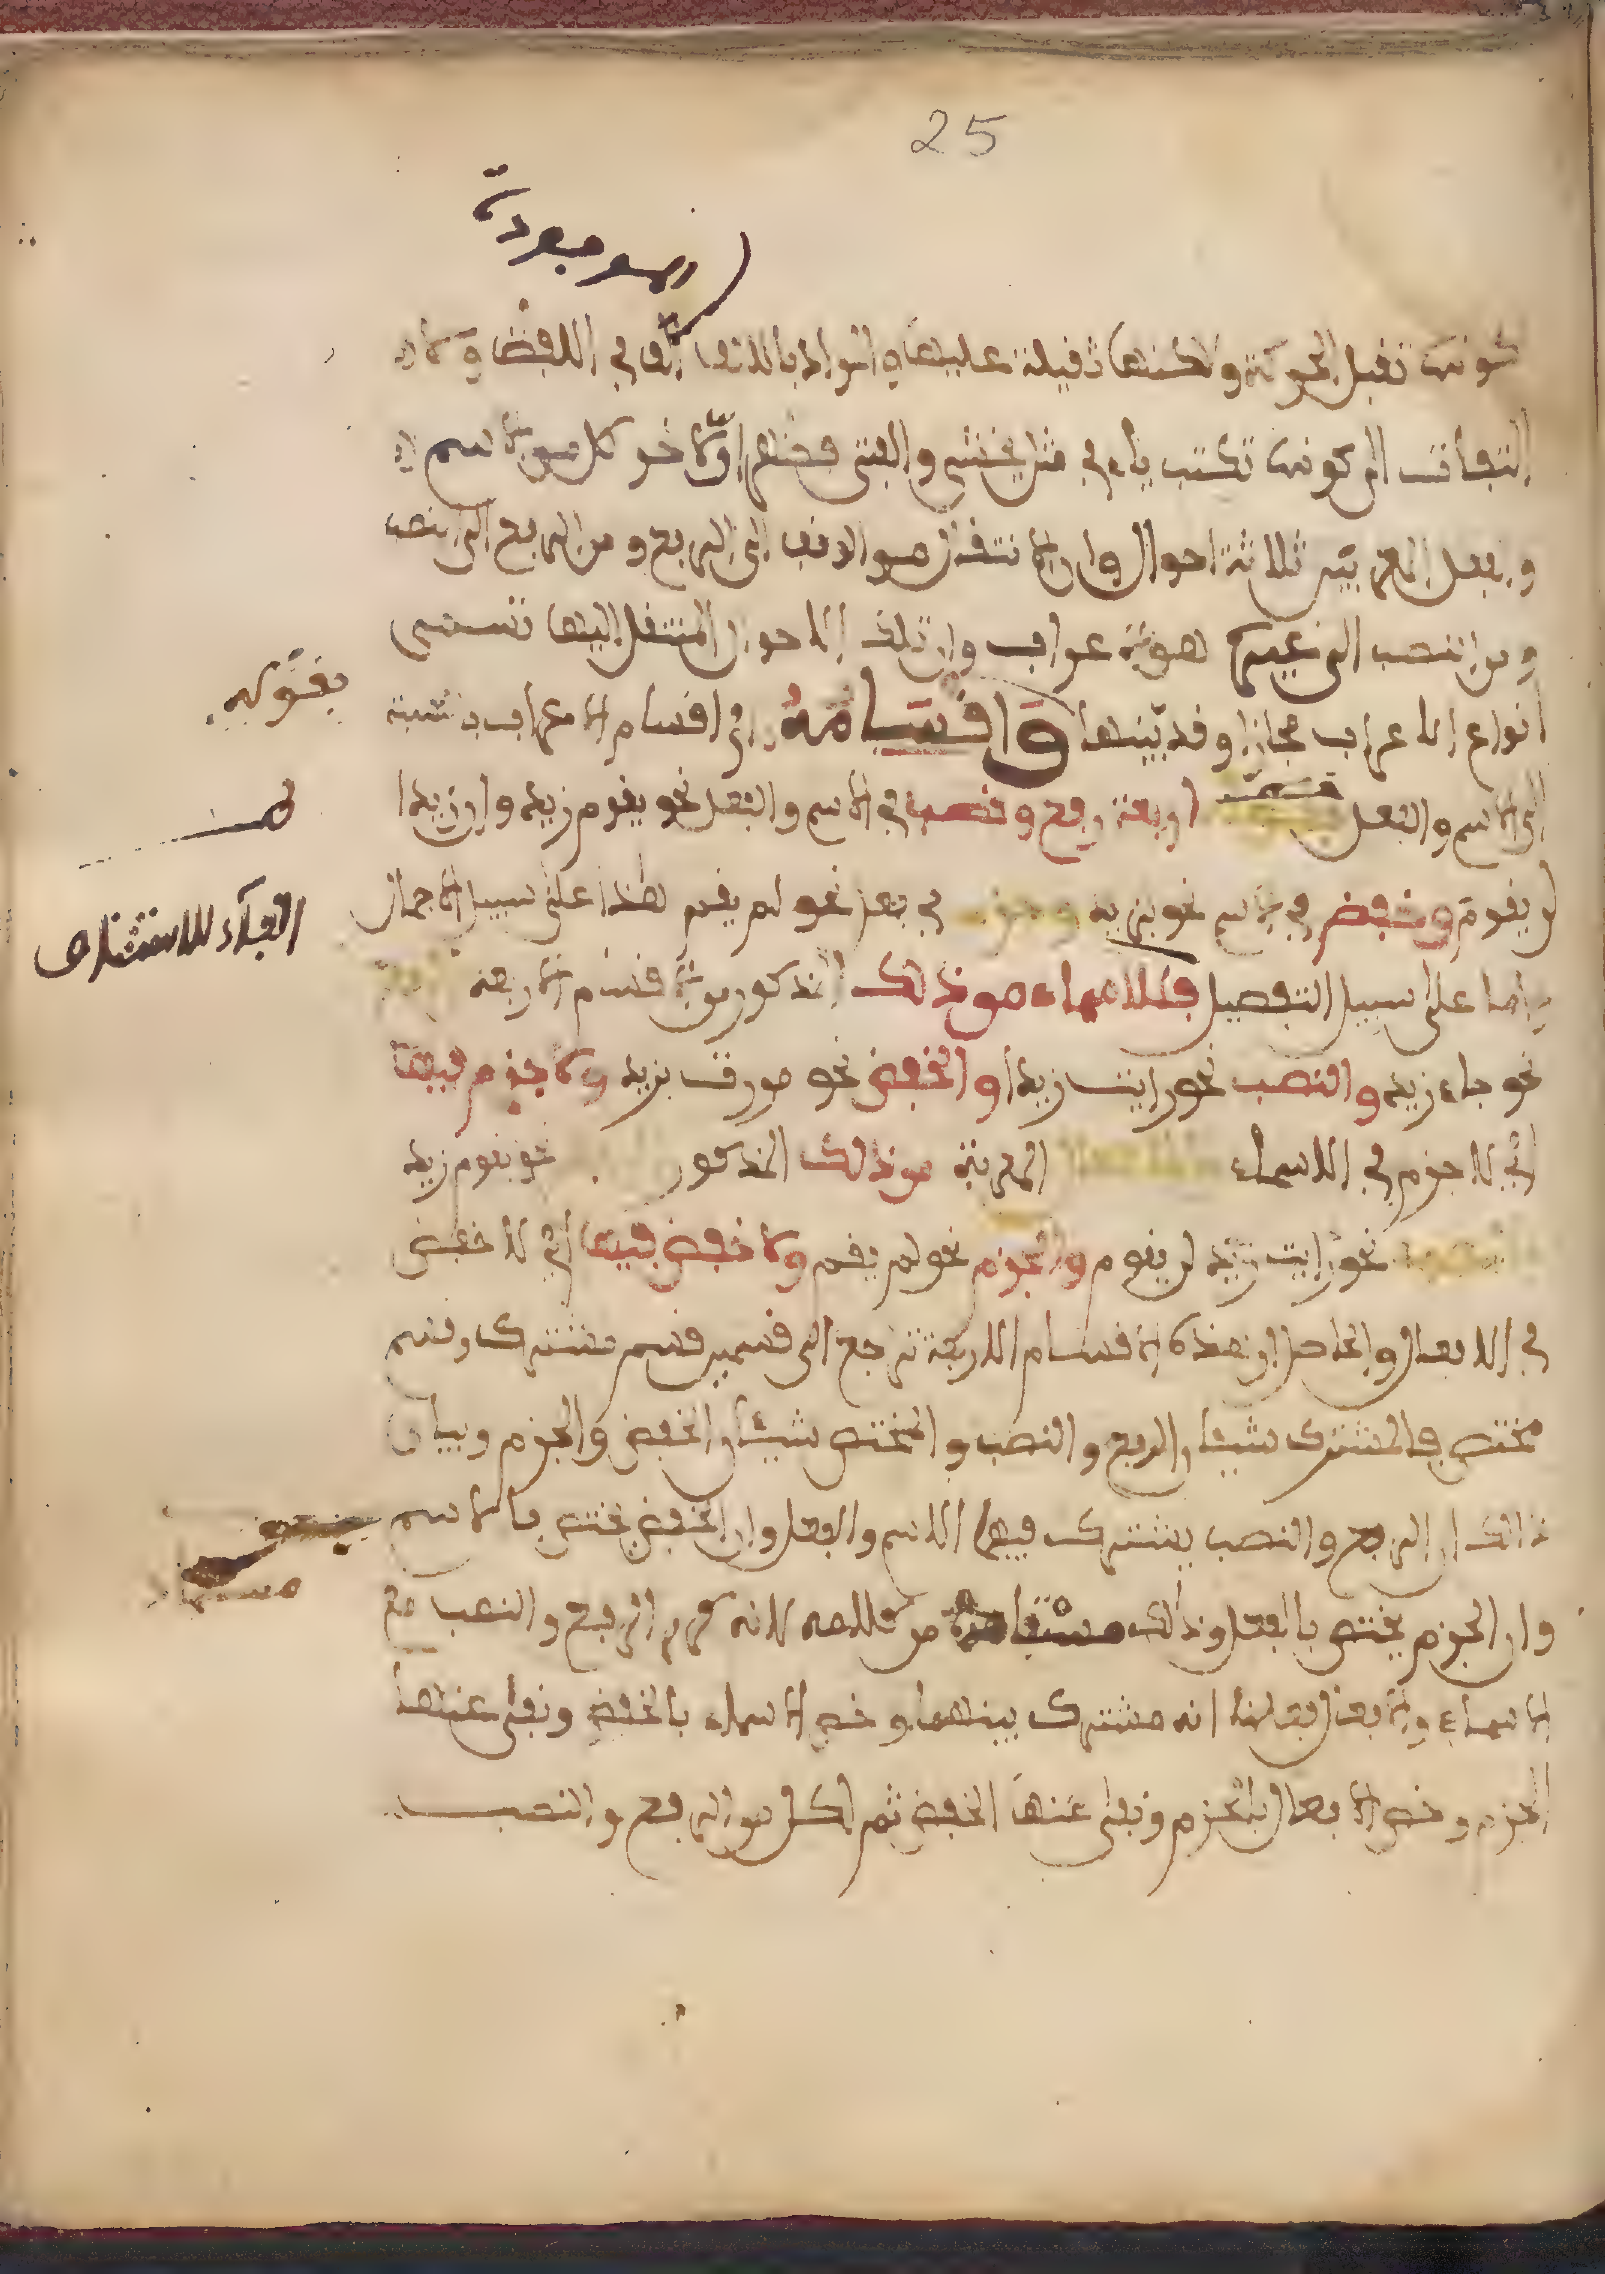 25
الموجودة
كونها تقبل الحركة ولكنها ثقيلة عليها والمراد بالالف الف في اللفظ ولا
التفات الى كونها تكتب ياء في مثل يخشى والفتى فظهر ان لاخر كل من الاسم
والفعل المعربين ثلاثة احوال وان الانتقال من الوقف الى الرفع ومن الرفع الى النصب
ومن النصب الى غيره هو الاعراب وان تلك الاحوال المنتقل اليها تسمى
انواع الاعراب مجازا وقد بينها بقوله واقسامه اي اقسام الاعراب بالنسبة
الى الاسم والفعل اربعة رفع ونصب في الاسم والفعل نحو يقوم زيد وان زيدا
لن يقوم وخفض في الاسم نحو بزيد وجزم في الفعل نحو لم يقم هذا على سبيل الاجمال
واما على سبيل التفصيل فللاسماء من ذلك المذكور من الاقسام الاربعة
نحو جاء زيد والنصب نحو رايت زيدا والخفض نحو مررت بزيد ولا جزم فيها
اي لا جزم في الاسماء المعربة من ذلك المذكور نحو يقوم زيد
نحو رايت زيد لن يقوم والجزم نحو لم يقم ولا خفض فيها اي لا خفض
في الافعال والحاصل ان هذه الاقسام الاربعة ترجع الى قسمين قسم مشترك وقسم
مختص فالمشترك شيئان الرفع والنصب والمختص شيئان الخفض والجزم وبيان
ذالك ان الرفع والنصب يشترك فيهما الاسم والفعل وان الخفض يختص بالاسم
وان الجزم يختص بالفعل وذالك من كلامه لانه كرر الرفع والنصب مع
الاسماء والافعال فعلمنا انه مشترك بينهما وخص الاسماء بالخفض ونفى عنها
الجزم وخص الافعال بالجزم ونفى عنها الخفض ثم لكل من الرفع والنصب
بقوله